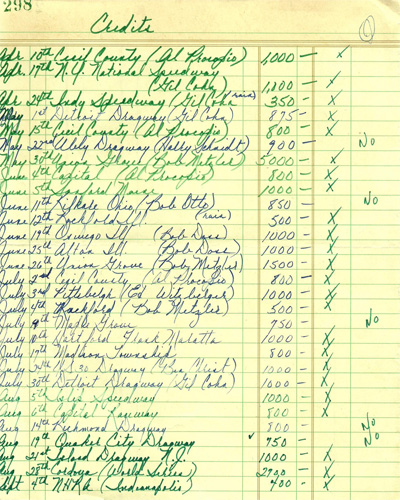 298
Credits
Apr 10th Cecil County (Al Procopio) 1,000 — x
Apr. 17th N.Y. National Speedway
(Gil Cohn) 1,200 — x
Apr 24th Indy Speedway (Gil Cohn rain) 350 — x
May 1st Detroit Dragway (Gil Cohn) 875 — x
May 15th Cecil County (Al Procopio) 800 — x
May 22nd Dragway 900 — No
May 30th Union Grove (Bob Metzler) 5000 — x
June 4th Capital (Al Procopio) 800 — x
June 5th Sanford Maine 1000 — x
June 11th Kilkare Ohio (Bob Otto) 850 — No
June 12th Rockford Ill. (rain) 500 — x
June 19th Oswego Ill (Bob Doss) 1000 — x
June 25th Alton Ill. (Bob Doss) 1000 — x
June 26th Union Grove (Bob Metzler) 1500 — x
July 2nd Cecil County (Al Procopio) 800 — x
July 3rd Pittsburgh (Ed 1000 — x
July 4th Rockford (Bob Metzler) 500 — x
July 9th Maple Grove 750 — No
July 10th Dartford Frank Maratta 1000 — x
July 17th Madison Township 800 — x
July 24th U.S. 30 Dragway 1000 — x
July 30th Detroit Dragway (Gil Cohn) 1000 — x
Aug 5th Speedway 1000 — x
Aug 6th Capital Raceway 800 — x
Aug 14th Richmond Dragway 800 — No
Aug 19th Quaker City Dragway ✓ 750 — No
Aug 21st Island Dragway N.J. 1000 — x
Aug 28th Cordova (World Series) 2700 — x
Sept 4th NHRA (Indianapolis) 400 — x